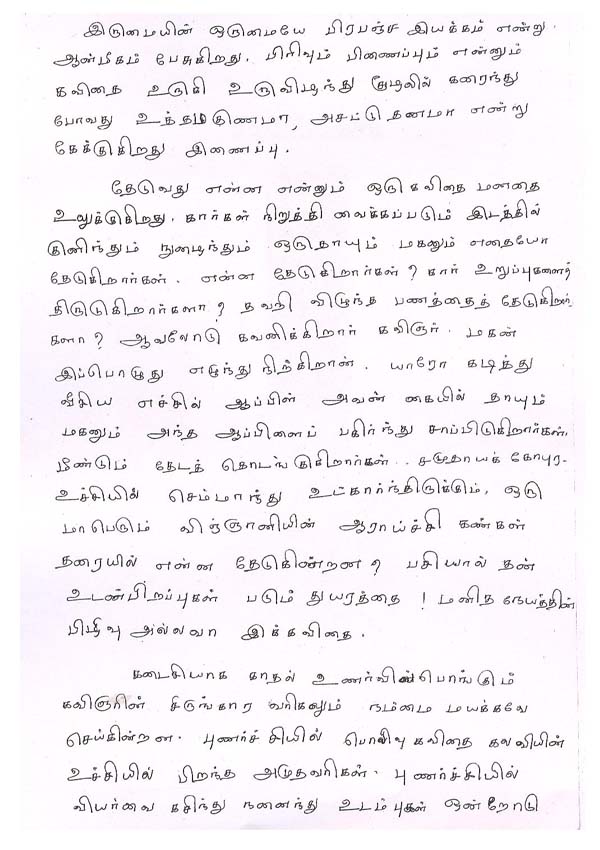 இருமையின் ஒருமையே பிரபஞ்ச இயக்கம் என்று
ஆன்மீகம் பேசுகிறது. பிரிவும் பிணைப்பும் என்னும்
கவிதை உருகி உருவிழந்து கூடலில் கரைந்து
போவது உத்தமகுணமா, அசட்டு தனமா என்று
கேக்குகிறது இணைப்பு.
தேடுவது என்ன என்னும் ஒரு கவிதை மனதை
உலுக்குகிறது. கார்கள் நிறுத்தி வைக்கப்படும் இடத்தில்
குனிந்தும் நுழைந்தும் ஒருதாயும் மகனும் எதையோ
தேடுகிறார்கள். என்ன தேடுகிறார்கள்? கார் உறுப்புகளைத்
திருடுகிறார்களா? தவறி விழுந்த பணத்தைத் தேடுகிறார்
களா? ஆவலோடு கவனிக்கிறார் கவிஞர். மகன்
இப்பொழுது எழுந்து நிற்கிறான். யாரோ கடித்து
வீசிய எச்சில் ஆப்பிள் அவன் கையில் தாயும்
மகனும் அந்த ஆப்பிளைப் பகிர்ந்து சாப்பிடுகிறார்கள்.
மீண்டும் தேடத் தொடங்குகிறார்கள்.. சமுதாயக் கோபுர-
உச்சியில் செம்மாந்து உட்கார்ந்திருக்கும், ஒரு
மாபெரும் விஞ்ஞானியின் ஆராய்ச்சி கண்கள்
தரையில் என்ன தேடுகின்றன? பசியால் தன்
உடன்பிறப்புகள் படும் துயரத்தை! மனித நேயத்தின்
பிழிவு அல்லவா இக்கவிதை.
கடைசியாக காதல் உணர்வின்பொங்கும்
கவிஞரின் சிருங்கார வரிகளும் நம்மை மயக்கவே
செய்கின்றன. புணர்ச்சியில் பொலிவு கவிதை கலவியின்
உச்சியில் பிறந்த அமுதவரிகள். புணர்ச்சியில்
வியர்வை கசிந்து நனைந்து உடம்புகள் ஒன்றோடு